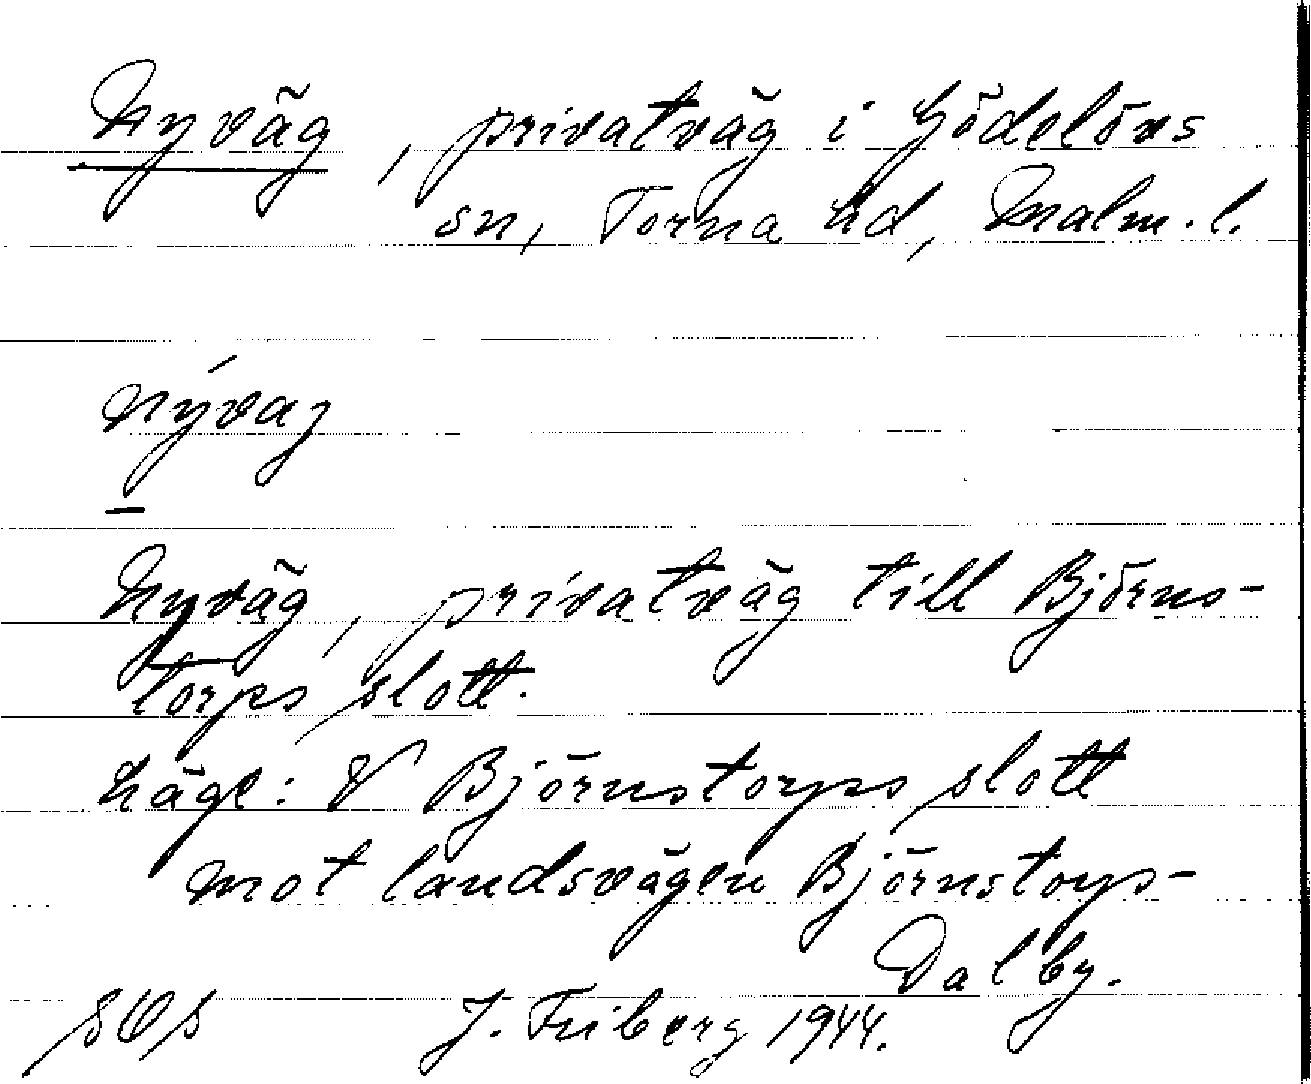 Nyväg, privatväg i Gödelövs
sn, Torna hd, Malm.l.
nývag
Nyväg, privatväg till Björns-
torps slott.
Läge: V Björnstorps slott
mot landsvägen Björnstorps-
Dalby.
J. Friberg 1944.